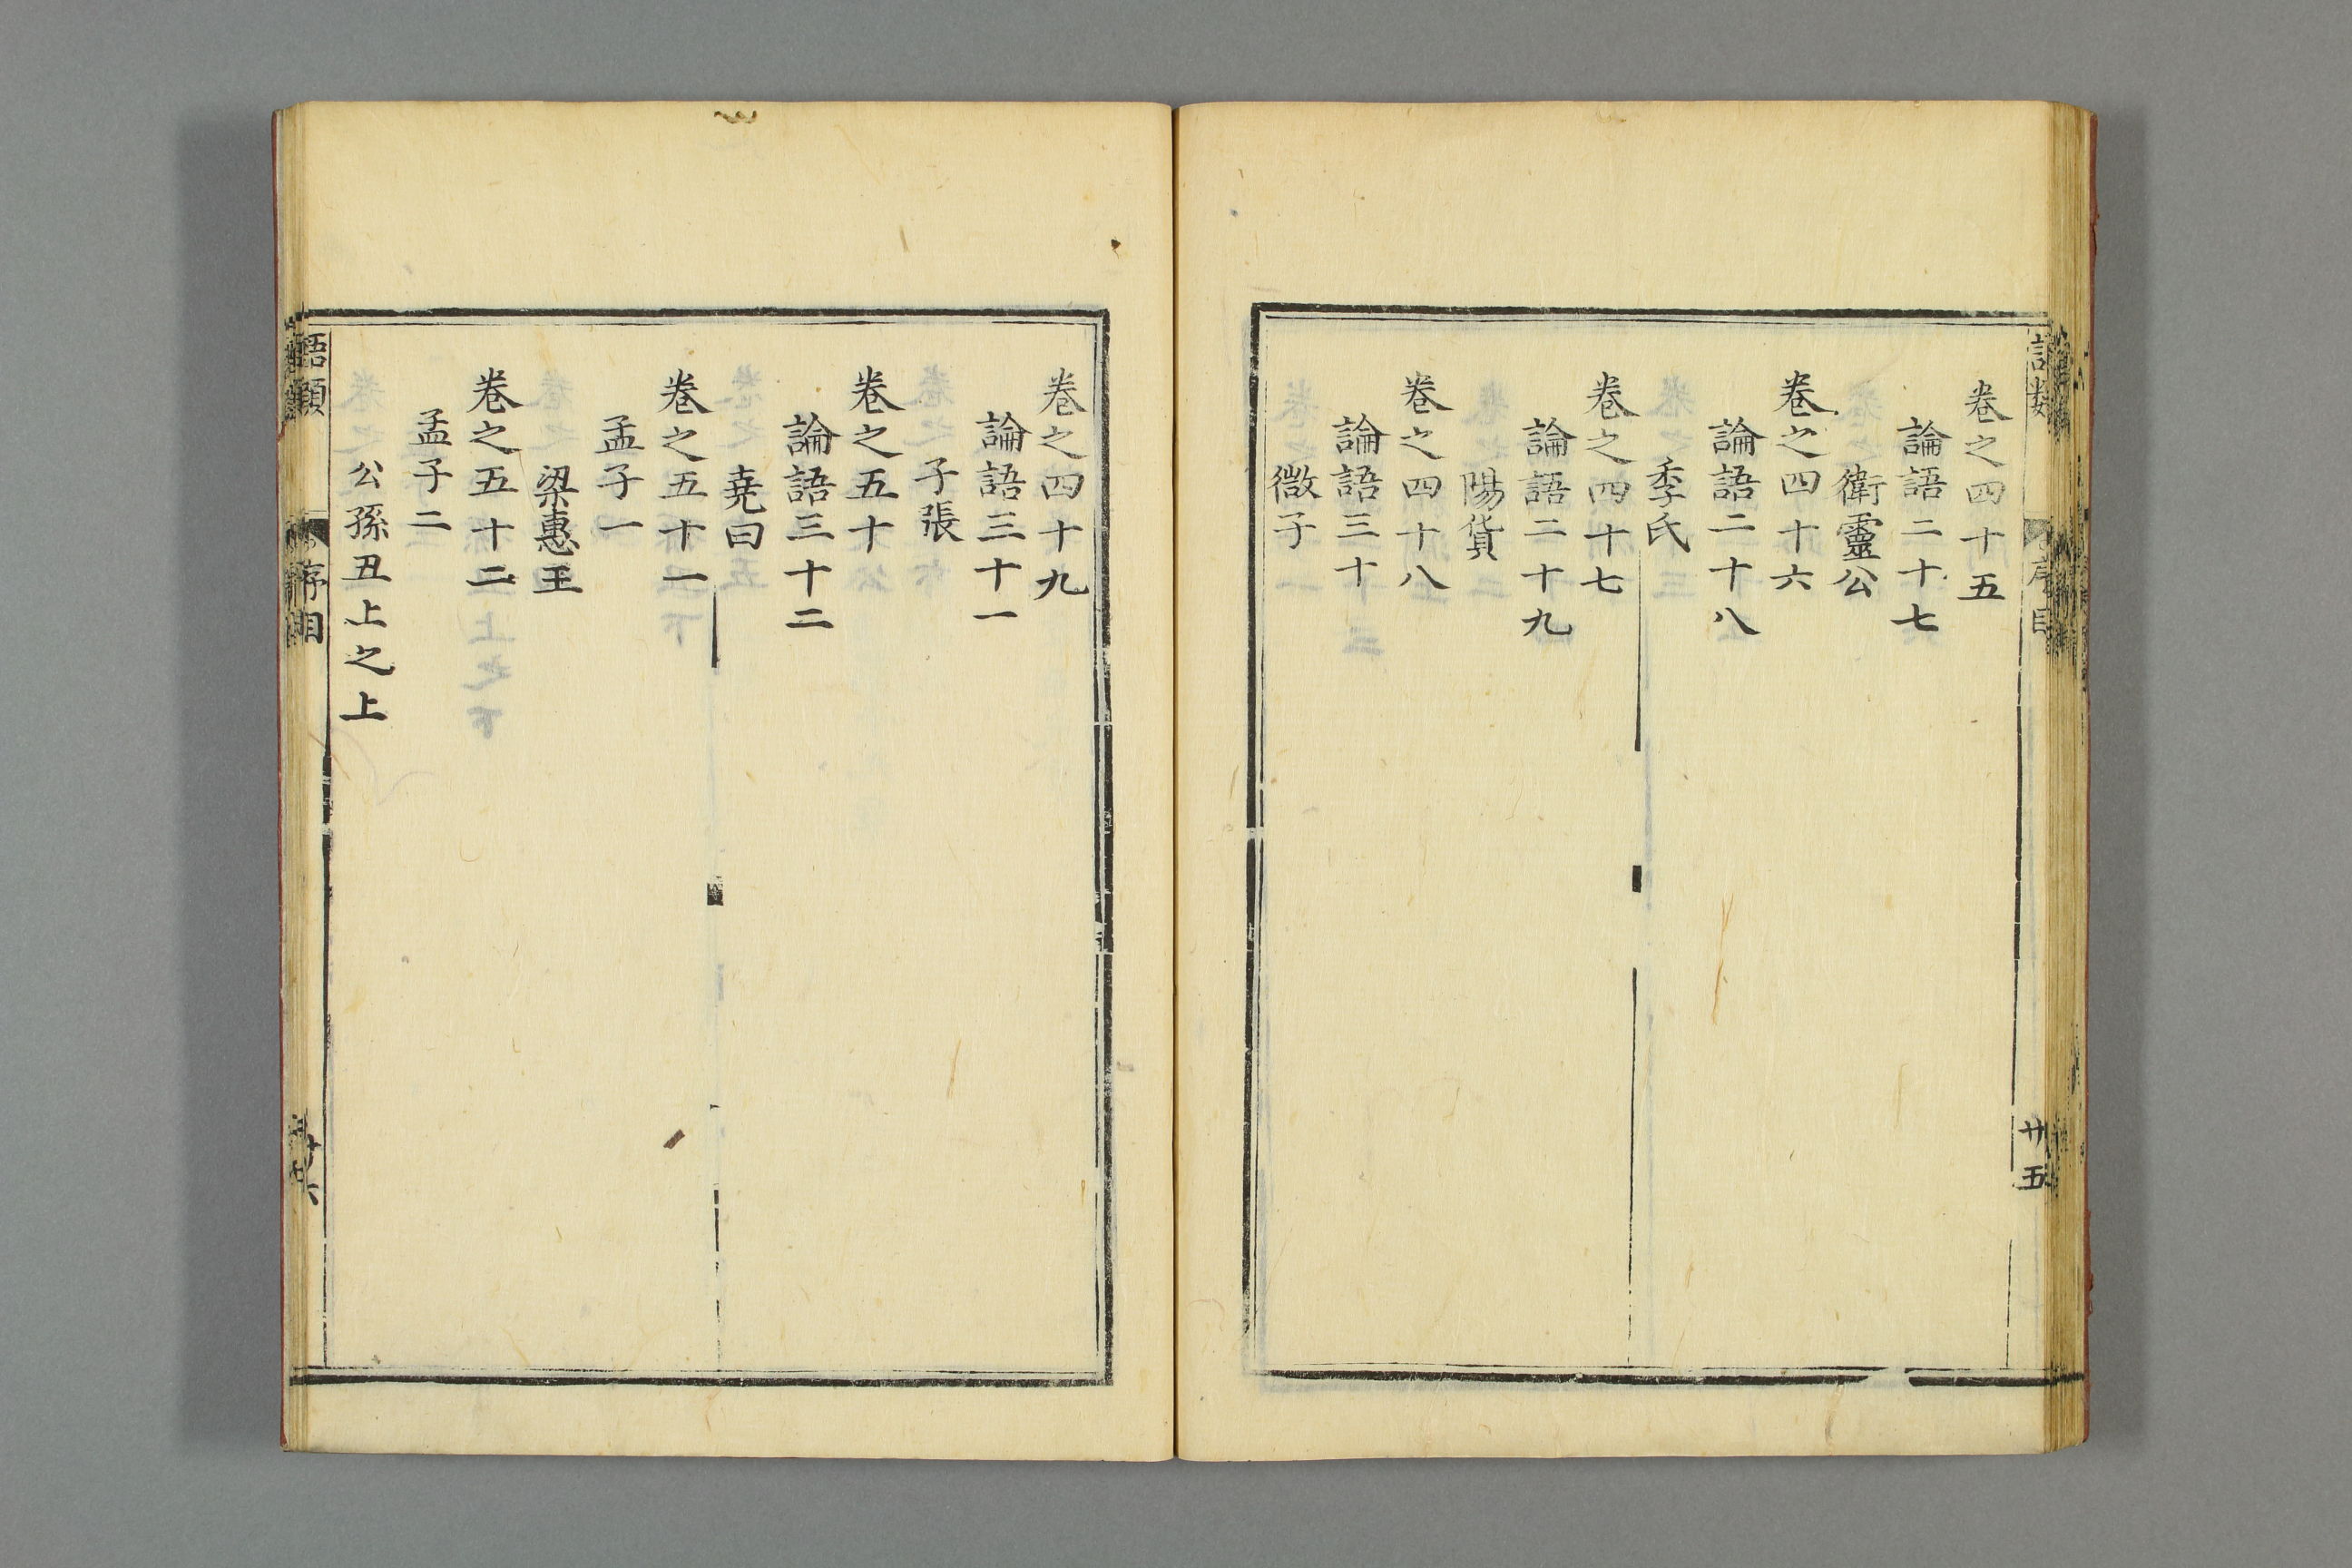 卷之四十五
論語二十七
衛靈公
卷之四十六
論語二十八
季氏
卷之四十七
論語二十九
陽貨
卷之四十八
論語三十
微子
廿五
卷之四十九
論語三十一
子張
卷之五十
論語三十二
堯曰
卷之五十一
孟子一
梁惠王
卷之五十二
孟子二
公孫丑上之上
語類 序目